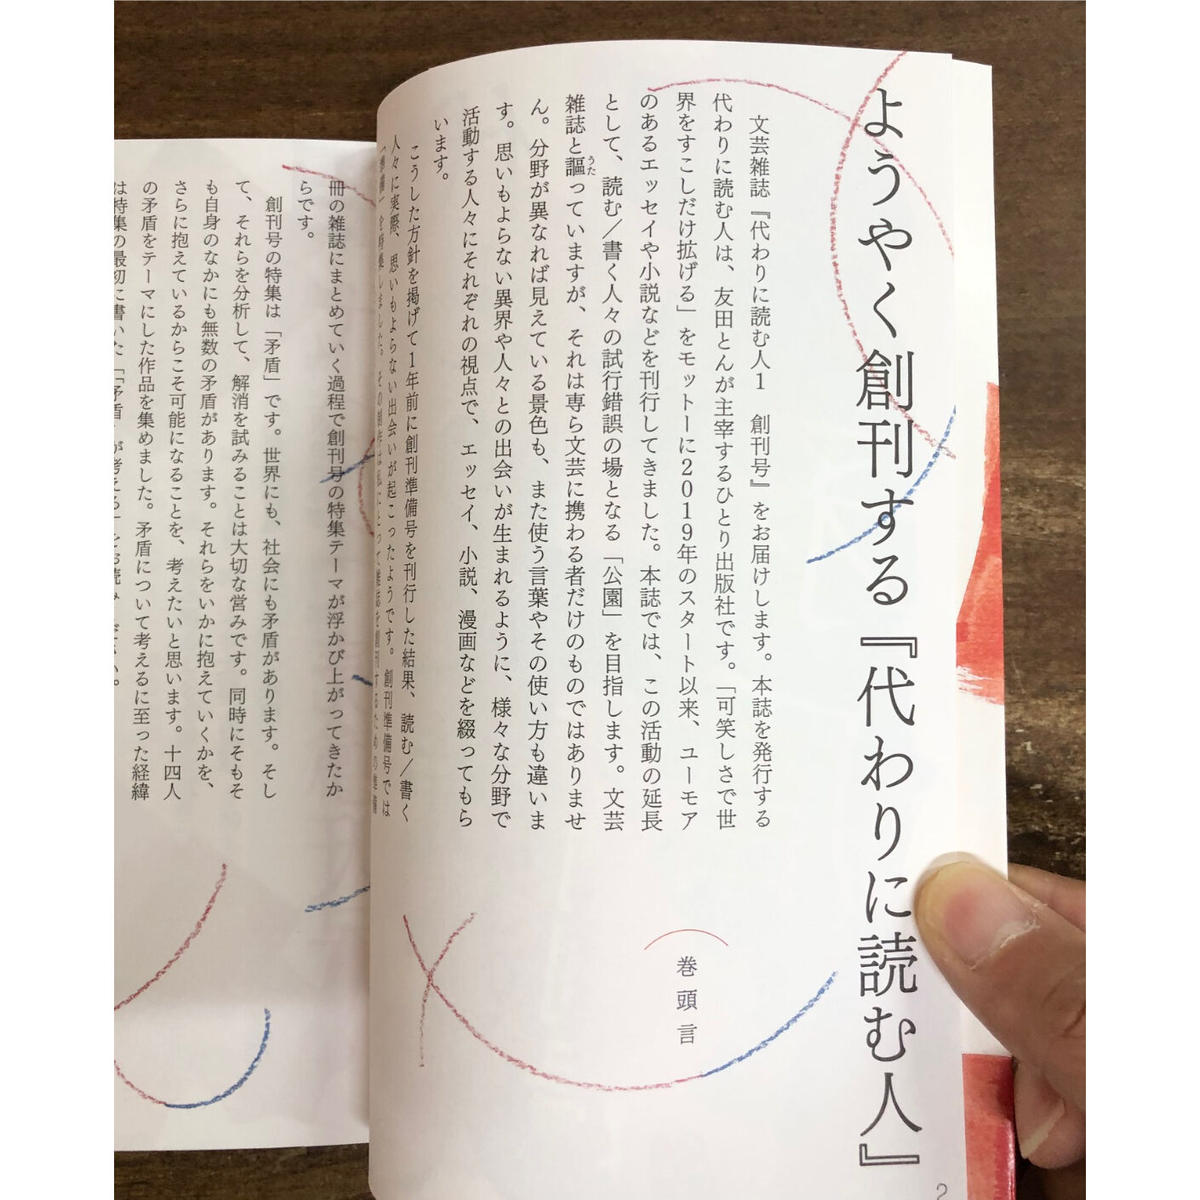 ようやく創刊する『代わりに読む人』
巻頭言
文芸雑誌『代わりに読む人1　創刊号』をお届けします。本誌を発行する
代わりに読む人は、友田とんが主宰するひとり出版社です。「可笑しさで世
界をすこしだけ拡げる」をモットーに2019年のスタート以来、ユーモア
のあるエッセイや小説などを刊行してきました。本誌では、この活動の延長
として、読む／書く人々の試行錯誤の場となる「公園」を目指します。文芸
雑誌と謳っていますが、それは専ら文芸に携わる者だけのものではありませ
うた
ん。分野が異なれば見えている景色も、また使う言葉やその使い方も違いま
す。思いもよらない異界や人々との出会いが生まれるように、様々な分野で
活動する人々にそれぞれの視点で、エッセイ、小説、漫画などを綴ってもら
います。
こうした方針を掲げて1年前に創刊準備号を刊行した結果、読む／書く
人々に実際、思いもよらない出会いが起こったようです。創刊準備号では
「準備」を特集しました。その創作は私にとって雑誌を創刊するための準備
2
冊の雑誌にまとめていく過程で創刊号の特集テーマが浮かび上がってきたか
らです。
創刊号の特集は「矛盾」です。世界にも、社会にも矛盾があります。そし
て、それらを分析して、解消を試みることは大切な営みです。同時にそもそ
も自身のなかにも無数の矛盾があります。それらをいかに抱えていくかを、
さらに抱えているからこそ可能になることを、考えたいと思います。十四人
の矛盾をテーマにした作品を集めました。矛盾について考えるに至った経緯
は特集の最初に書いた「「矛盾」が考える」をお読みください。